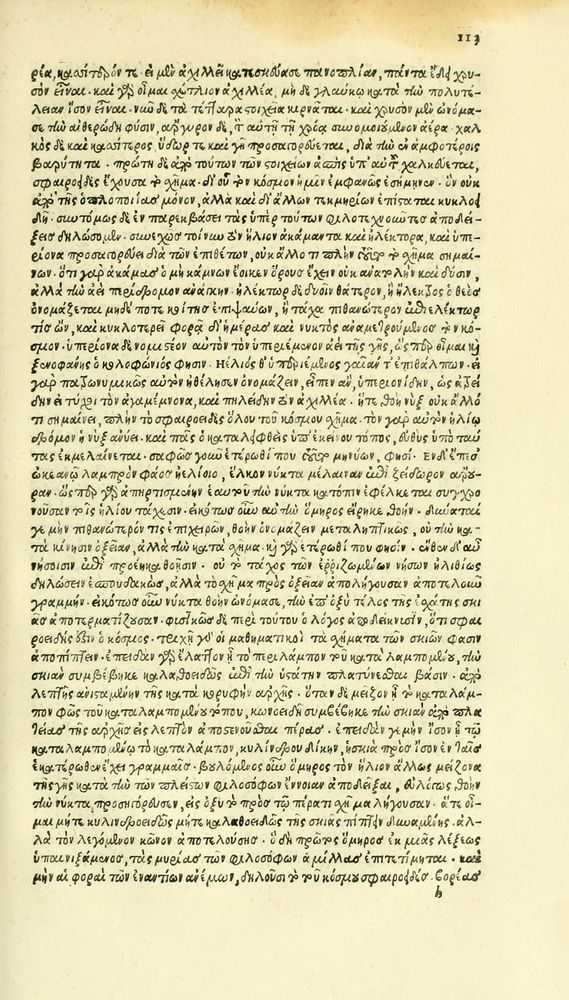 113
ρία, κασσίτερόν τε. εἰ μὲν ἀχιλλεῖ κατεσκεύασε πανοπλίαν, πάντα ἔδει χρυ-
σὸν εἶναι. καὶ γὰρ οἶμαι χρὴ πλέον ἀχιλλέα, μὴ δὲ γλαύκῳ κατὰ τὴν πολυτέ-
λειαν ἴσον εἶναι. νῦν δὲ τὰ τέτταρα στοιχεῖα κιρνᾶται. καὶ χρυσὸν μὲν ὠνόμα-
σε τὴν αἰθερώδη φύσιν, ἄργυρον δὲ, τὸν αὐτῇ τῇ χρόᾳ συνομοιούμενον ἀέρα. χαλ-
κὸς δὲ καὶ κασσίτερος, ὕδωρ τε καὶ γῆ προσαγορεύεται, διὰ τὴν ἐν ἀμφοτέροις
βαρύτητα. πρώτη δὲ ἀπὸ τούτων τῶν στοιχείων ἀσπὶς ὑπ' αὐτοῦ χαλκεύεται,
σφαιροειδὲς ἔχουσα τὸ σχῆμα. δι' οὗ τὸν κόσμον ἡμῖν ἐμφανῶς ἐσήμηνεν. ὃν οὐκ
ἀπὸ τῆς ὁπλοποιίας μόνον, ἀλλὰ καὶ δι' ἄλλων τεκμηρίων ἐπίσταται κυκλοει
δῆ. συντόμως δὲ ἐν παρεκβάσει τὰς ὑπὲρ τούτων φιλοτεχνούσας ἀποδεί-
ξεις δηλώσομεν. συνεχῶς τοίνυν τὸν ἥλιον ἀκάμαντα καὶ ἠλέκτορα, καὶ ὑπε-
ρίονα προσαγορεύει διὰ τῶν ἐπιθέτων, οὐκ ἄλλο τι πλὴν τοῦτο τὸ σχῆμα σημαί-
νων. ὅ τε γὰρ ἀκάμας ὁ μὴ κάμνων ἔοικεν ὅρους ἔχειν οὐκ ἀνατολὴν καὶ δύσιν,
ἀλλὰ τὴν ἀεὶ περίδρομον ἀνάγκην. ἠλέκτωρ δὲ δυσὶν θάτερον, ἢ ἄλεκτος ὁ θεὸς
ὀνομάζεται μηδέποτε κοίτης ἐπιψαύων, ἢ τάχα πιθανώτερον ἐπεὶ ἑλέκτωρ
τις ὢν, καὶ κυκλοτερεῖ φορᾷ δι' ἡμέρας καὶ νυκτὸς ἀναμετρούμενος τὸν κό-
σμον. ὑπερίονα δὲ νομιστέον αὐτὸν τὸν ὑπεριέμενον ἀεὶ τῆς γῆς, ὥσπερ οἶμαι καὶ
ξενοφάνης ὁ κολοφώνιός φησιν. Ηέλιός θ' ὑπεριέμενος γαῖαν τ' ἐπιθάλπων. εἰ
γὰρ πατρωνυμικῶς αὐτὸν ἠθέλησεν ὀνομάζειν, εἶπεν ἂν, ὑπεριονίδην, ὡς ἀτρεί
δην εἰ τύχοι τὸν ἀγαμέμνονα, καὶ πηλείδην τὸν ἀχιλλέα. ἥ τε θοὴ νὺξ οὐκ ἄλλό
τι σημαίνει, πλὴν τὸ σφαιροειδὲς ὅλου τοῦ κόσμου σχῆμα. τὸν γὰρ αὐτὸν ἡλίῳ
δρόμον ἡ νὺξ ἀνύει. καὶ πᾶς ὁ καταλειφθεὶς ὑπ' ἐκείνου τόπος, εὐθὺς ὑπὸ ταύ
τας ἐκμελαίνεται. σαφῶς γοῦν ἑτέρωθί που τοῦτο μηνύων, φησί. Ἐν δ' ἔπεσ'
ὠκεανῷ λαμπρὸν φάος ἠελίοιο, ἕλκον νύκτα μέλαιναν ἐπὶ ζείδωρον ἄρου-
ραν. ὥσπερ γὰρ ἀπηρτισμένην ἑαυτοῦ τὴν νύκτα κατόπιν ἐφέλκεται συγχρο
νοῦσαν τοῖς ἡλίου τάχεσιν. εἰκότως οὖν αὐτὴν ὅμηρος εἴρηκε θοήν. δύναταί
γε μὴν πιθανώτερόν τις ἐπιχειρῶν, θοὴν ὀνομάζειν μεταληπτικῶς, οὐ τὴν κα-
τὰ κίνησιν ὀξεῖαν, ἀλλὰ τὴν κατὰ σχῆμα. καὶ γὰρ ἑτέρωθί που φησίν. ἔνθεν δ' αὖ
νήσοισιν ἐπιπροέηκα θοῇσιν. οὐ τὸ τάχος τῶν ἐρριζωμένων νήσων ἠλιθίως
δηλώσειν ἐσπουδακὼς, ἀλλὰ τὸ σχῆμα πρὸς ὀξεῖαν ἀπολήγουσαν ἀποτελοῦν
γραμμήν. εἰκότως οὖν νύκτα θοὴν ὠνόμασε, τὴν ἐπ' ὀξὺ τέλος τῆς ἐσχάτης σκι
ᾶς ἀποτερματίζουσαν. φυσικῶς δὲ περὶ τούτου ὁ λόγος ἀποδείκνυσιν, ὅτι σφαι
ροειδής ἐστιν ὁ κόσμος. τριχῆ γὰρ οἱ μαθηματικοὶ τὰ σχήματα τῶν σκιῶν φασιν
ἀποπίπτειν. ἐπειδὰν γὰρ ἔλαττον ᾖ τὸ περιλάμπον τοῦ καταλαμπομένου, τὴν
σκιὰν συμβέβηκε καλαθοειδῶς ἐπὶ τὴν ὑστάτην πλατύνεσθαι βάσιν. ἀπὸ
λεπτῆς ἀνισταμένην τῆς κατὰ κορυφὴν ἀρχῆς. ὅταν δὲ μεῖζον ᾖ τὸ καταλάμ-
πον φῶς τοῦ καταλαμπομένου τόπου, κωνοειδῆ συμβέβηκε τὴν σκιὰν ἀπὸ πλα
τείας τῆς ἀρχῆς εἰς λεπτὸν ἀποστενοῦσθαι πέρας. ἐπειδὰν γε μὴν ἴσον ᾖ τῷ
καταλαμπομένῳ τὸ καταλάμπον, κυλίνδρου δίκην, ἡ σκιὰ πρὸς ἴσον ἐν ταῖς
ἑκατέρωθεν ἔχει γραμμαῖς. βουλόμενος οὖν ὅμηρος τὸν ἥλιον ἄλλως μείζονα
τῆς γῆς κατὰ τὴν τῶν πλείστων φιλοσόφων ἔννοιαν ἀποδεῖξαι, εὐλόγως θοὴν
τὴν νύκτα προσηγόρευσεν, εἰς ὀξὺ τὸ πρὸς τῷ πέρατι σχῆμα λήγουσαν. ἅτε οἶ-
μαι μήτε κυλινδροειδῶς μήτε καλαθοειδῶς τῆς σκιᾶς πίπτειν δυναμένης. ἀλ-
λὰ τὸν λεγόμενον κῶνον ἀποτελούσης. ὃ δὴ πρῶτος ὅμηρος ἐκ μιᾶς λέξεως
ὑπαινιξάμενος, τὰς μυρίας τῶν φιλοσόφων ἁμίλλας ἐπιτέτμηται. καὶ
μὴν αἱ φοραὶ τῶν ἐναντίων ἀνέμων, δηλοῦσι τὸ τοῦ κόσμου σφαιροειδές. βορέας
h